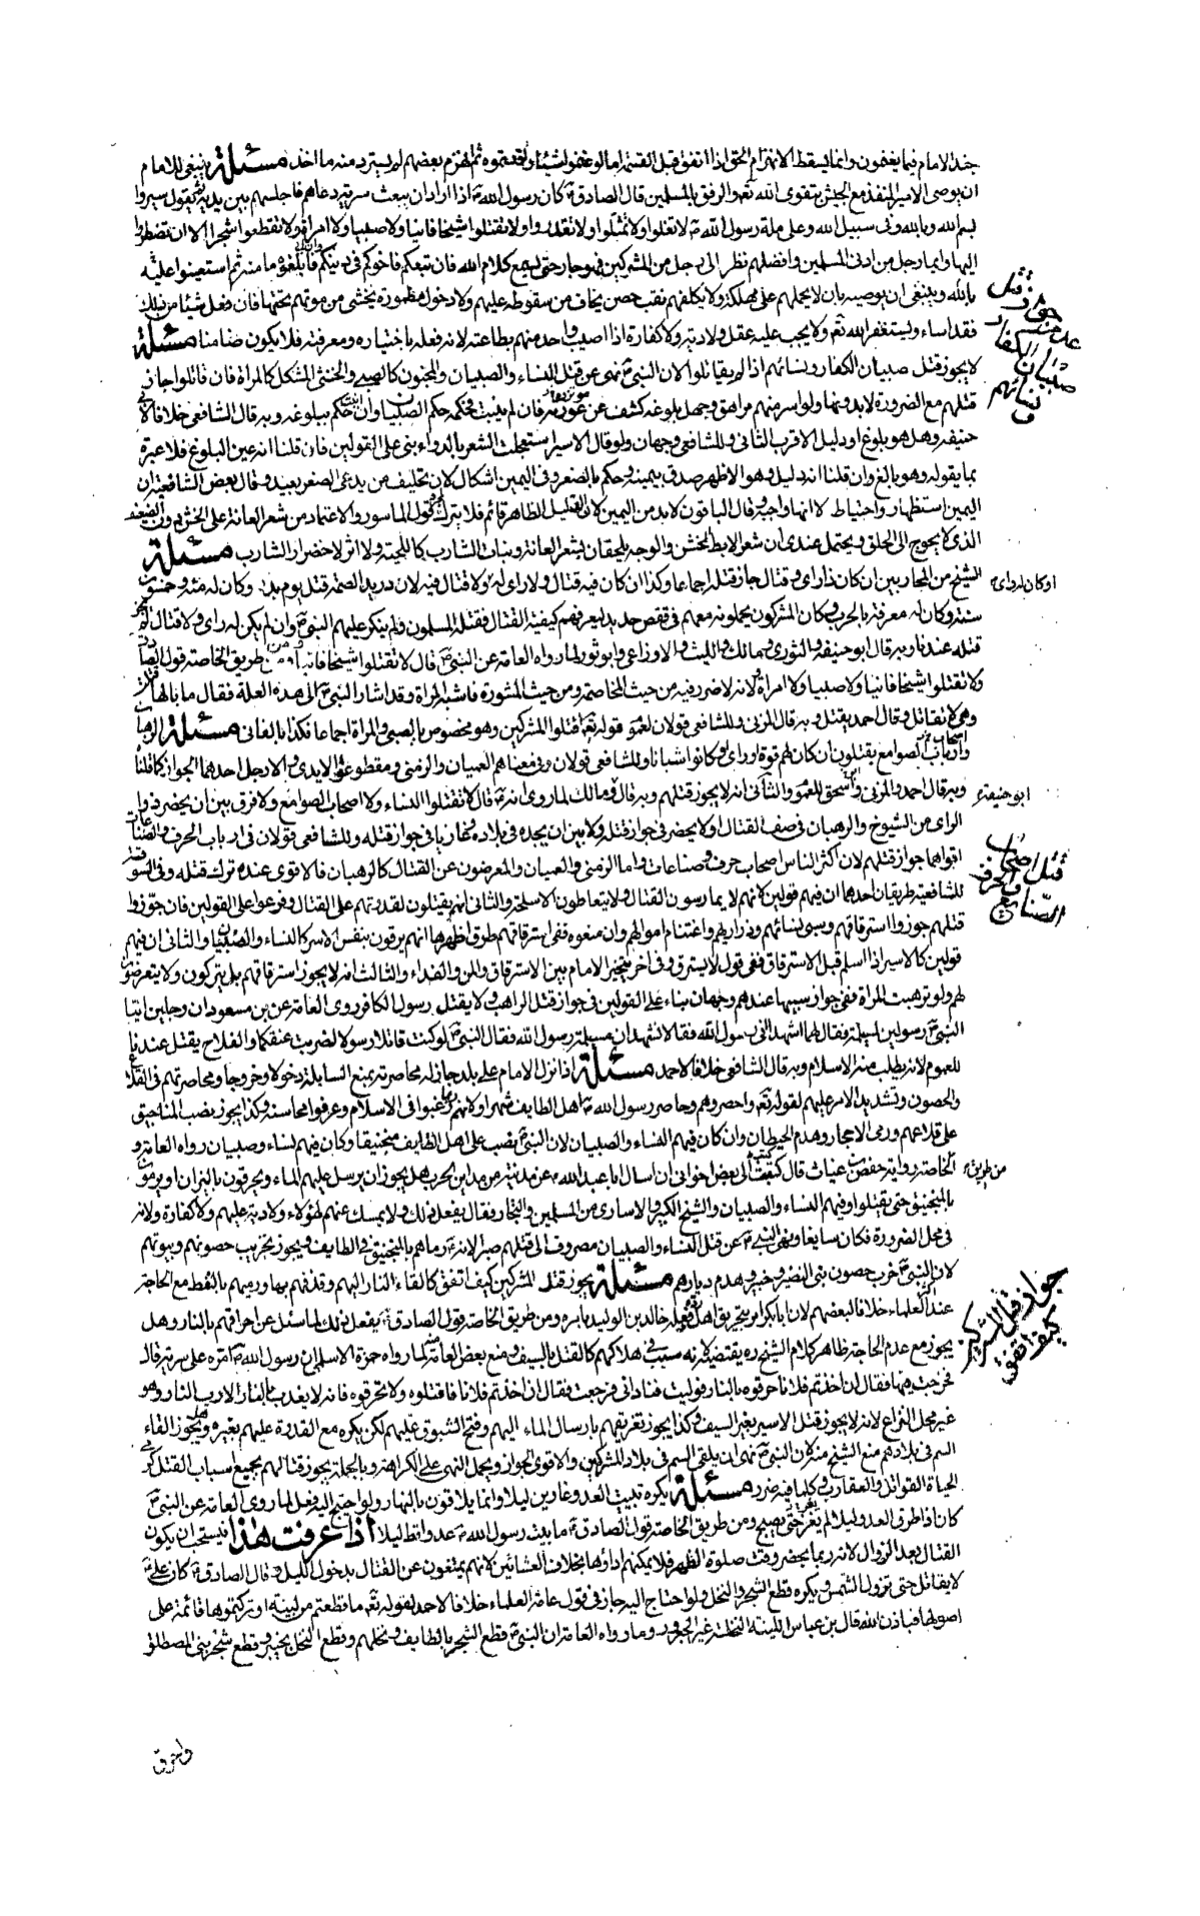 جند الامام فيما يغنمون وانما يسقط الانهزام الحق اذا اتفق قبل القسمة اما لو غنموا شيئا واقتسموه ثم انهزم بعضهم لم يسترد منه ما اخذ مسئلة ينبغي للامام
ان يوصى الامير المنفذ مع الجيش بتقوى الله تعه والرفق بالمسلمين قال الصادق ع كان رسول الله ص اذا اراد ان يبعث سرية دعاهم فاجلسهم بين يديه ثم يقول سيروا
بسم الله وبالله وفى سبيل الله وعلى ملة رسول الله ص لا تغلوا ولا تمثلوا ولا تغدروا ولا تقتلوا شيخا فانيا ولا صبيا ولا امراة ولا تقطعوا شجرا الا ان تضطروا
اليها وايما رجل من ادنى المسلمين وافضلهم نظر الى رجل من المشركين فهو جار حتى يسمع كلام الله فان تبعكم فاخوكم فى دينكم وان ابى فابلغوه مامنه ثم استعينوا عليه
بالله وينبغى ان يوصيه بان لا يحملهم على مهلكة ولا يكلفهم نقب حصن يخاف من سقوطه عليهم ولا دخول مطمورة يخشى من موتهم تحتها فان فعل شيئا من ذلك
فقد اساء ويستغفر الله تعه ولا يجب عليه عقل ولا دية ولا كفارة اذا اصيب واحد منهم بطاعته لانه فعله باختياره ومعرفته فلا يكون ضامنا مسئلة
لا يجوز قتل صبيان الكفار ونسائهم اذا لم يقاتلوا لان النبى ص نهى عن قتل النساء والصبيان والمجنون كالصبى والخنثى المشكل كالمراة فان قاتلوا جاز
قتلهم مع الضرورة لا بدونها ولو اسر منهم مراهق وجهل بلوغه كشف عن مؤتزره فان لم ينبت فحكمه حكم الصبيان وان انبت حكم ببلوغه وبه قال الشافعى خلافا لابى
حنيفه وهل هو بلوغ او دليل الاقرب الثانى وللشافعى وجهان ولو قال الاسير استعجلت الشعر بالدواء بنى على القولين فان قلنا انه عين البلوغ فلا عبرة
بما يقوله وهو بالغ وان قلنا انه دليل وهو الاظهر صدق بيمينه وحكم بالصغر وفى اليمين اشكال لان تحليف من يدعى الصغر بعيد وقال بعض الشافعية ان
اليمين استظهار واحتياط لا انها واجبة وقال الباقون لا بد من اليمين لان الدليل الظاهر قائم فلا يترك بقول الماسور والاعتماد من شعر العانة على الخشن دون الضعيف
الذى لا يحوج الى الحلق ويحتمل عندى ان شعر الابط الخشن والوجه يلحقان بشعر العانة ونبات الشارب كاللحية ولا اثر لاخضرار الشارب مسئلة
الشيخ من المحاربين ان كان ذا راى وقتال جاز قتله اجماعا وكذا ان كان فيه قتال ولا راى له او كان له راى ولا قتال فيه لان دريد الصمة قتل يوم بدر وكان له مئة وخمسون
سنة وكان له معرفة بالحرب وكان المشركون يحملونه معهم فى قفص حديد ليعرفهم كيفية القتال فقتله المسلمون ولم ينكر عليهم النبى ص وان لم يكن له راى ولا قتال لم يجز
قتله عندنا وبه قال ابو حنيفه والثورى ومالك والليث والاوزاعى وابو ثور لما رواه العامة عن النبى ص قال لا تقتلوا شيخا فانيا ومن طريق الخاصة قول الصادق
ولا تقتلوا شيخا فانيا ولا صبيا ولا امراة ولانه لا ضرر فيه من حيث المخاصمة ومن حيث المشورة فاشبه المراة وقد اشار النبى ص الى هذه العلة فقال ما بالها قتلت
وهى لا تقاتل وقال احمد يقتل وبه قال المزنى وللشافعى قولان لعموم قوله تعه اقتلوا المشركين وهو مخصوص بالصبى والمراة اجماعا فكذا بالفانى مسئلة الرهبان
واصحاب الصوامع يقتلون ان كان لهم قوة او راى او كانوا شبانا وللشافعى قولان وفى معناهم العميان والزمنى ومقطوعو الايدى والارجل احدهما الجواز كما قلنا
وبه قال احمد والمزنى واسحق للعموم والثانى انه لا يجوز قتلهم وبه قال ابو حنيفة ومالك لما روى انه ص قال لا تقتلوا النساء ولا اصحاب الصوامع ولا فرق بين ان يحضر ذوات
الراى من الشيوخ والرهبان فى صف القتال او لا يحضر فى جواز قتله ولا بين ان يجده فى بلاده وغازيا فى جواز قتله وللشافعى قولان فى ارباب الحرف والصناعات
اقواهما جواز قتلهم لان اكثر الناس اصحاب حرف وصناعات واما الزمنى والعميان والمعرضون عن القتال كالرهبان فالاقوى عنده ترك قتله وفى السوقة
للشافعية طريقان احدهما ان فيهم قولين لانهم لا يمارسون القتال ولا يتعاطون الاسلحة والثانى انهم يقتلون لقدرتهم على القتال وفرعوا على القولين فان جوزوا
قتلهم جوزوا استرقاقهم وسبى نسائهم وذراريهم واغتنام اموالهم وان منعوه ففى استرقاقهم طرق اظهرها انهم يرقون بنفس الاسر كالنساء والصبيان والثانى ان فيهم
قولين كالاسير اذا اسلم قبل الاسترقاق ففى قول لا يسترق وفى اخر يتخير الامام بين الاسترقاق والمن والفداء والثالث انه لا يجوز استرقاقهم بل يتركون ولا يتعرضون
لهم ولو ترهبت المراة ففى جواز سبيها عندهم وجهان بناء على القولين فى جواز قتل الراهب ولا يقتل رسول الكافر روى العامة عن بن مسعود ان رجلين اتيا
النبى ص رسولين لمسيلمة فقال لهما اشهدا انى رسول الله فقالا نشهد ان مسيلمة رسول الله فقال النبى ص لو كنت قاتلا رسولا لضربت عنقكما والفلاح يقتل عندنا
للعموم لانه يطلب منه الاسلام وبه قال الشافعى خلافا لاحمد مسئلة اذا نزل الامام على بلد جاز له محاصرته بمنع السابلة دخولا وخروجا ومحاصرتهم فى القلاع
والحصون وتشديد الامر عليهم لقوله تعه واحصروهم وحاصر رسول الله ص اهل الطايف شهرا ولانهم ربما رغبوا فى الاسلام وعرفوا محاسنه وكذا يجوز نصب المناجيق
على قلاعهم ورمى الاحجار وهدم الحيطان وان كان فيهم النساء والصبيان لان النبى ص نصب على اهل الطايف منجنيقا وكان فيهم نساء وصبيان رواه العامة و
من طريق الخاصة رواية حفص بن غياث قال كتب الى بعض اخوانى ان اسال ابا عبد الله ع عن مدينة من مداين الحرب هل يجوز ان يرسل عليهم الماء ويحرقون بالنيران او يرمون
بالمنجنيق حتى يقتلوا وفيهم النساء والصبيان والشيخ الكبير والاسارى من المسلمين والتجار فقال يفعل ذلك ولا يمسك عنهم لهؤلاء ولا دية عليهم ولا كفارة ولانه
فى محل الضرورة فكان سايغا ونهى النبى ص عن قتل النساء والصبيان مصروف الى قتلهم صبرا لانه ص رماهم بالمنجنيق فى الطايف ويجوز تخريب حصونهم وبيوتهم
لان النبى ص خرب حصون بنى النضير وخيبر وهدم ديارهم مسئلة يجوز قتل المشركين كيف اتفق كالقاء النار اليهم وقذفهم بها ورميهم بالنفط مع الحاجة
عند اكثر العلماء خلافا لبعضهم لان ابا بكر امر بتحريق اهل الردة وفعله خالد بن الوليد بامره ومن طريق الخاصة قول الصادق ع يفعل ذلك لما سئل عن احراقهم بالنار وهل
يجوز مع عدم الحاجة ظاهر كلام الشيخ ره يقتضيه لانه سبب فى هلاكهم كالقتل بالسيف ومنع بعض العامة منه لما رواه حمزة الاسلمى ان رسول الله ص امره على سرية قال
فخرجت فيها فقال ان اخذتم فلانا حرقوه بالنار فوليت فنادانى فرجعت فقال ان اخذتم فلانا فاقتلوه ولا تحرقوه فانه لا يعذب بالنار الا رب النار وهو
غير محل النزاع لانه لا يجوز قتل الاسير بغير السيف وكذا يجوز تغريقهم بارسال الماء اليهم وفتح الشبوق عليهم لكن يكره مع القدرة عليهم بغيره وهل يجوز القاء
السم فى بلادهم منع الشيخ منه لان النبى ص نهى ان يلقى السم فى بلاد المشركين والاقوى الجواز ويحمل النهى على الكراهة وبالجملة يجوز قتالهم بجميع اسباب القتل كرمى
الحياة القواتل والعقارب وكلما فيه ضرر مسئلة يكره تبييت العدو غارين ليلا وانما يلاقون بالنهار ولو احتيج اليه فعل لما روى العامة عن النبى ص
كان اذا طرق العدو ليلا لم يغر حتى يصبح ومن طريق الخاصة قول الصادق ع ما بيت رسول الله ص عدوا قط ليلا اذا عرفت هذا فيستحب ان يكون
القتال بعد الزوال لانه ربما يحضر وقت صلوة الظهر فلا يمكنهم اداؤها بخلاف العشائين لانهم يمتنعون عن القتال بدخول الليل وقال الصادق ع كان على ع
لا يقاتل حتى تزول الشمس ويكره قطع الشجر والنخل ولو احتاج اليه جاز فى قول عامة العلماء خلافا لاحمد لقوله تعه ما قطعتم من لينة او تركتموها قائمة على
اصولها فباذن الله قال بن عباس اللينة النخلة غير الجعرور وما رواه العامة ان النبى ص قطع الشجر بالطايف ونخلهم وقطع النخل بخيبر وقطع شجر بنى المصطلق
واحرق
عدم جواز قتل
صبيان الكفار
ونسائهم
او كان له راى
ابو حنيفة
قتل اصحاب
الحرف
والصنايع
من طريق
جواز قتل المشركين
كيف اتفق